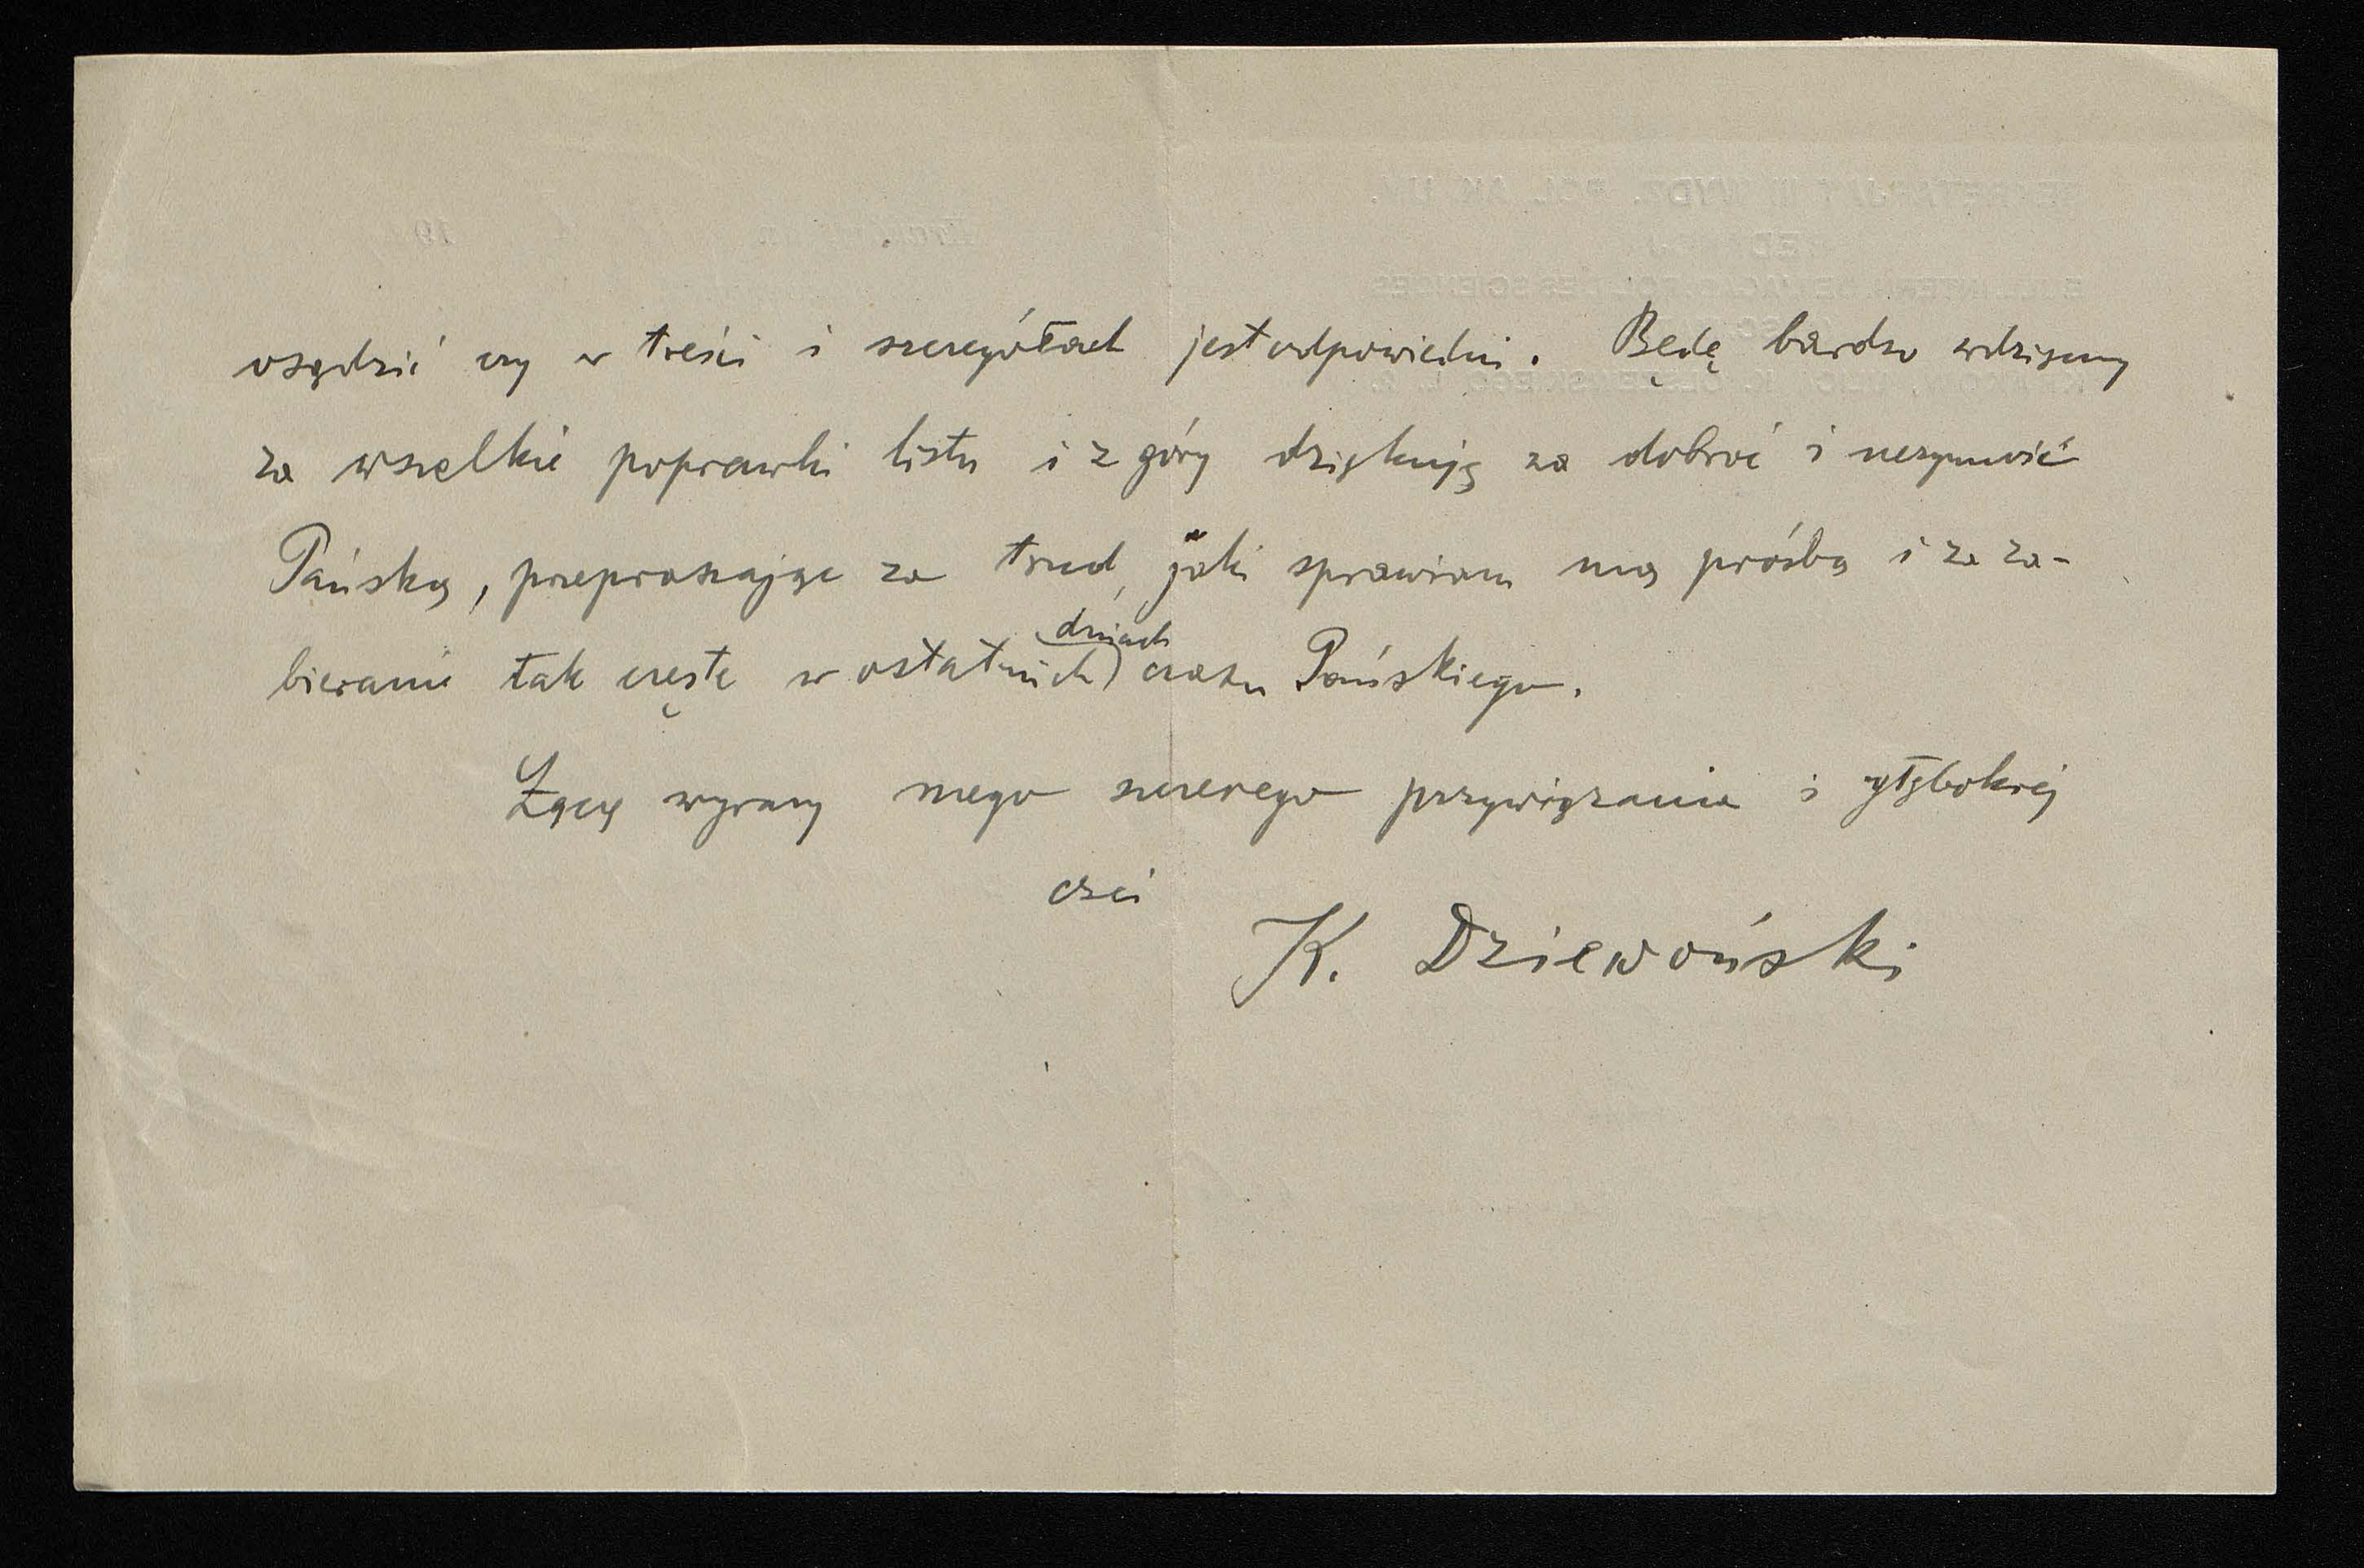 osądzić czy w treści i szczegółach jest odpowiedni. Będę bardzo wdzięczny
za wszelkie poprawki listu i z góry dziękuję za dobroć i uczynność
Pańską, przepraszając za trud, jaki sprawiam mą prośbą i za za-
bieranie tak częste w ostatnich dniach czasu Pańskiego.
Łączę wyrazy mego szczerego przywiązania i głębokiej
czci
K. Dziewoński